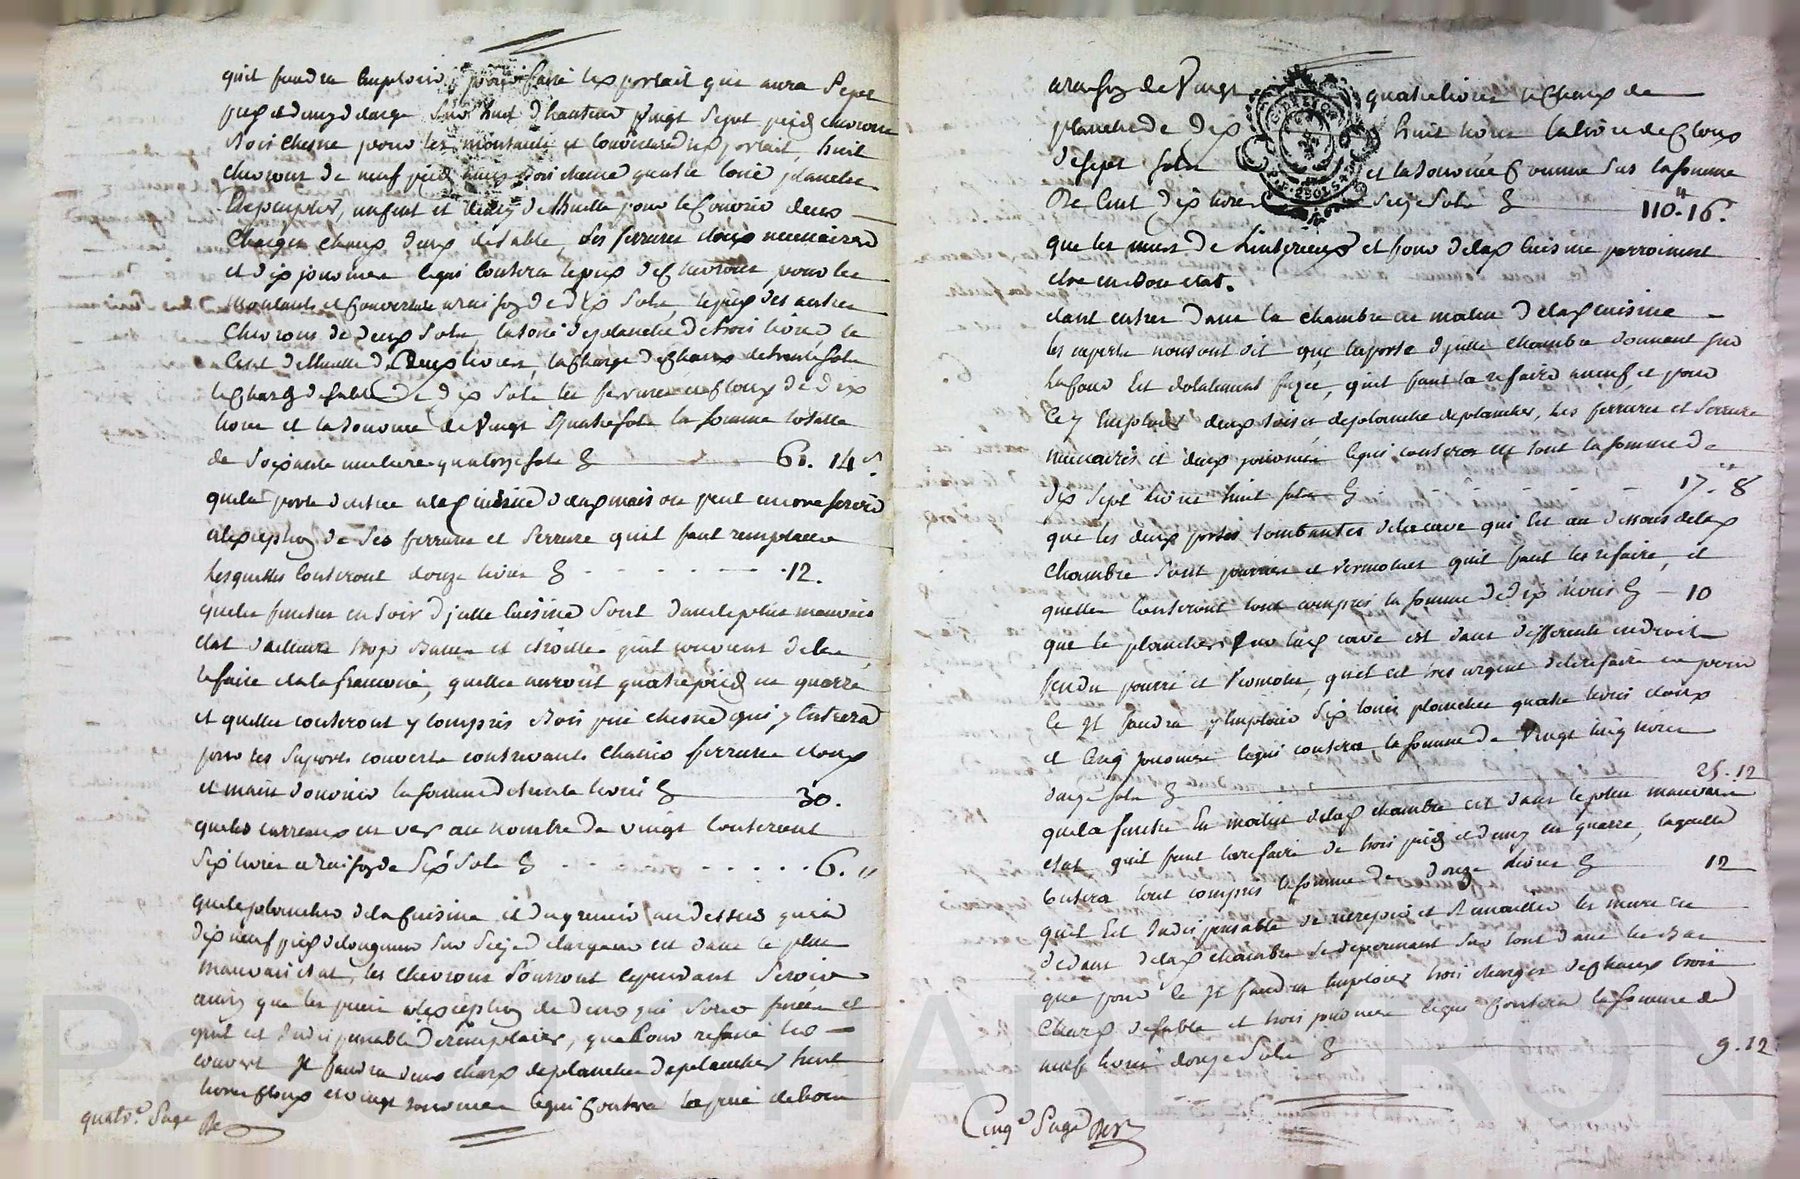 qu'il faudra Emploier, pour faire les portail que aura Sept
pieds et demy de large Sur huit d'hauteur Vingt Sept pieds chevrons
Bois chesne pour les montants et couverture du portail, huit
chevrons de neuf pieds aussy bois chesne quatre toise planches
De peuplier, un cent et demy de thuille pour le Couvrir deux
Charges chaux deux de sable, Les ferrures cloux necessaires
et dix journées ce qui Coutera le prix des chevrons pour les
montants et Couverture a raison de dix Sols, le prix des autres
Chevrons de deux Sols, la toise de planche de trois livres, le
Cent de thuille de Deux livres, la Charge de Chaux de trente sols
la Charge de sable de dix Sols les ferrures et cloux de dix
livres et la journée de Vingt quatre sols la somme totalle
de Soixante une livre quatorze sols 61. 14 s.
que la porte d'entrée a la cuisine de la maison peut encore servir
a l'exception de Ses ferrures et Serrure qu'il faut remplacer
Lesquelles Couteront douze livres 12.
que les fenetres en soir d'jcelle Cuisine Sont dans le plus mauvais
etat d'ailleurs trop Basses et etroittes qu'il convient de les
refaire a la francoise, quelles auront quatre pieds en quarré
et quelles couteront y Compris Bois pin chesne qui y Entrera
pour les Suports couverte contrevants chassis ferrures cloux
et main d'ouvrier la somme de trente livres 30.
que les carreaux en ver au nombre de vingt Couteront
Six livres a raison de Six Sols 6. "
que le plancher de la Cuisine et du grenier au dessus qui a
dix neuf pieds de longueur Sur Seize de largeur est dans le plus
mauvais etat, les chevrons Pourront cependant Servir
ainsy que les pieces a l'exception de deux qui sont fusées et
qu'il est Indispensable de remplacer, que Pour refaire les
couvert Jl faudra deux chars de planches de planches huit
livres Cloux et vingt journées ce qui Coutera le prix de bois
quatr.e Page
a raison de Vingt quatre livres le Chars de
planche de dix huit livres la livre de Cloux
de sept Sols et la journée Comme Sus la somme
De Cent Dix livres Seize Sols 110.tt 16.
que les murs de L'interieur et hors de la Cuisine parroissent
etre en Bon etat.
etant entrés dans la chambre en matin de la Cuisine
les experts nous ont dit que la porte d'jcelle chambre donnant sur
la Cour Est totalement fusée, qu'il faut la refaire a neuf, et pour
Ce y Emploier deux toises de planche de planches, Les ferrures et Serrure
necessaires et deux journées ce qui coutera en tout la somme de
dix Sept livres huit sols 17. tt 8
que les deux portes tombantes de la cave qui Est au dessous de la
Chambre Sont pourries et vermolues qu'il faut les refaire, et
quelles Couteront tout compris la somme de dix livres 10
que le plancher Sur la cave est dans differents endroits
fendu pourri et Vermolu, qu'il est tres urgent de le refaire que pour
Ce Jl faudra y Emploier dix toises planches quatre livres cloux
et Cinq journées ce qui coutera la somme de Vingt Cinq livres
douze sols 25. 12
que la fenetre En matin de la chambre est dans le plus mauvais
etat qu'il faut la refaire de trois pieds et demy en quarré, laquelle
Coutera tout compris la somme de douze livres 12
qu'il Est Indispensable de recrepir et Remailler les murs en
dedans de la chambre se deperissant sur tout dans le Bas
que pour Ce Jl faudra Emploier trois charges de Chaux trois
Chars de sable et trois journées ce qui Coutera la somme de
neuf livres douze Sols 9. 12
Cinq.e Page
Pascal CHARETRON